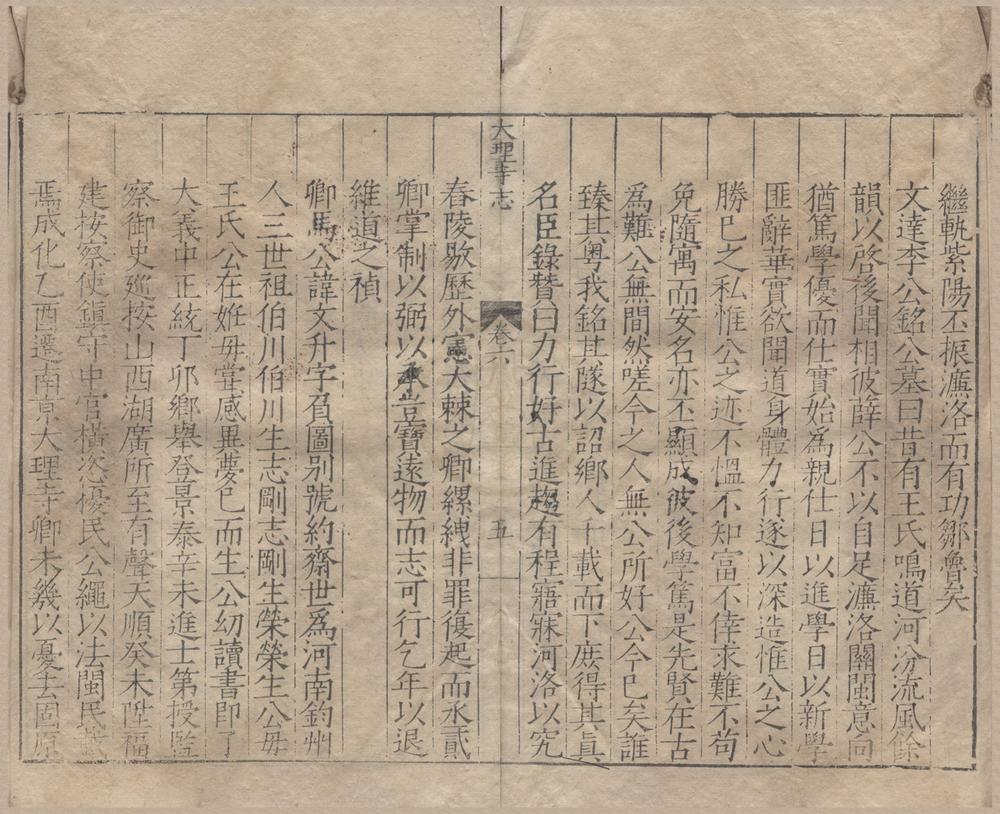 繼軌紫陽丕振濂洛而有功鄒魯矣
文達李公銘公墓曰昔有王氏鳴道河汾流風餘
韻以啓後聞相彼薛公不以自足濂洛關閩意向
猶篤學優而仕實始爲親仕日以進學日以新學
匪辭華實欲聞道身體力行遂以深造惟公之心
勝已之私惟公之迹不慍不知富不倖求難不苟
免隨寓而安名亦丕顯成彼後學篤是先賢在古
爲難公無間然嗟今之人無公所好公今已矣誰
臻其粤我銘其隧以詔鄉人千載而下庶得其眞
名臣錄贊曰力行好古進趨有程寤寐河洛以究
大理寺志
卷六
五
舂陵敭歷外憲大棘之卿縲絏非罪復起而丞貳
卿掌制以弼以承豈寶遠物而志可行乞年以退
維道之禎
卿馬公諱文升字負圖別號約齋世爲河南鈞州
人三世祖伯川伯川生志剛志剛生榮榮生公母
王氏公在姙母嘗感異夢已而生公幼讀書即了
大義中正統丁卯鄉舉登景泰辛未進士第授監
察御史廵按山西湖廣所至有聲天順癸未陞福
建按察使鎮守中官橫恣擾民公繩以法閩民戴
焉成化乙酉遷南京大理寺卿未幾以憂去固原